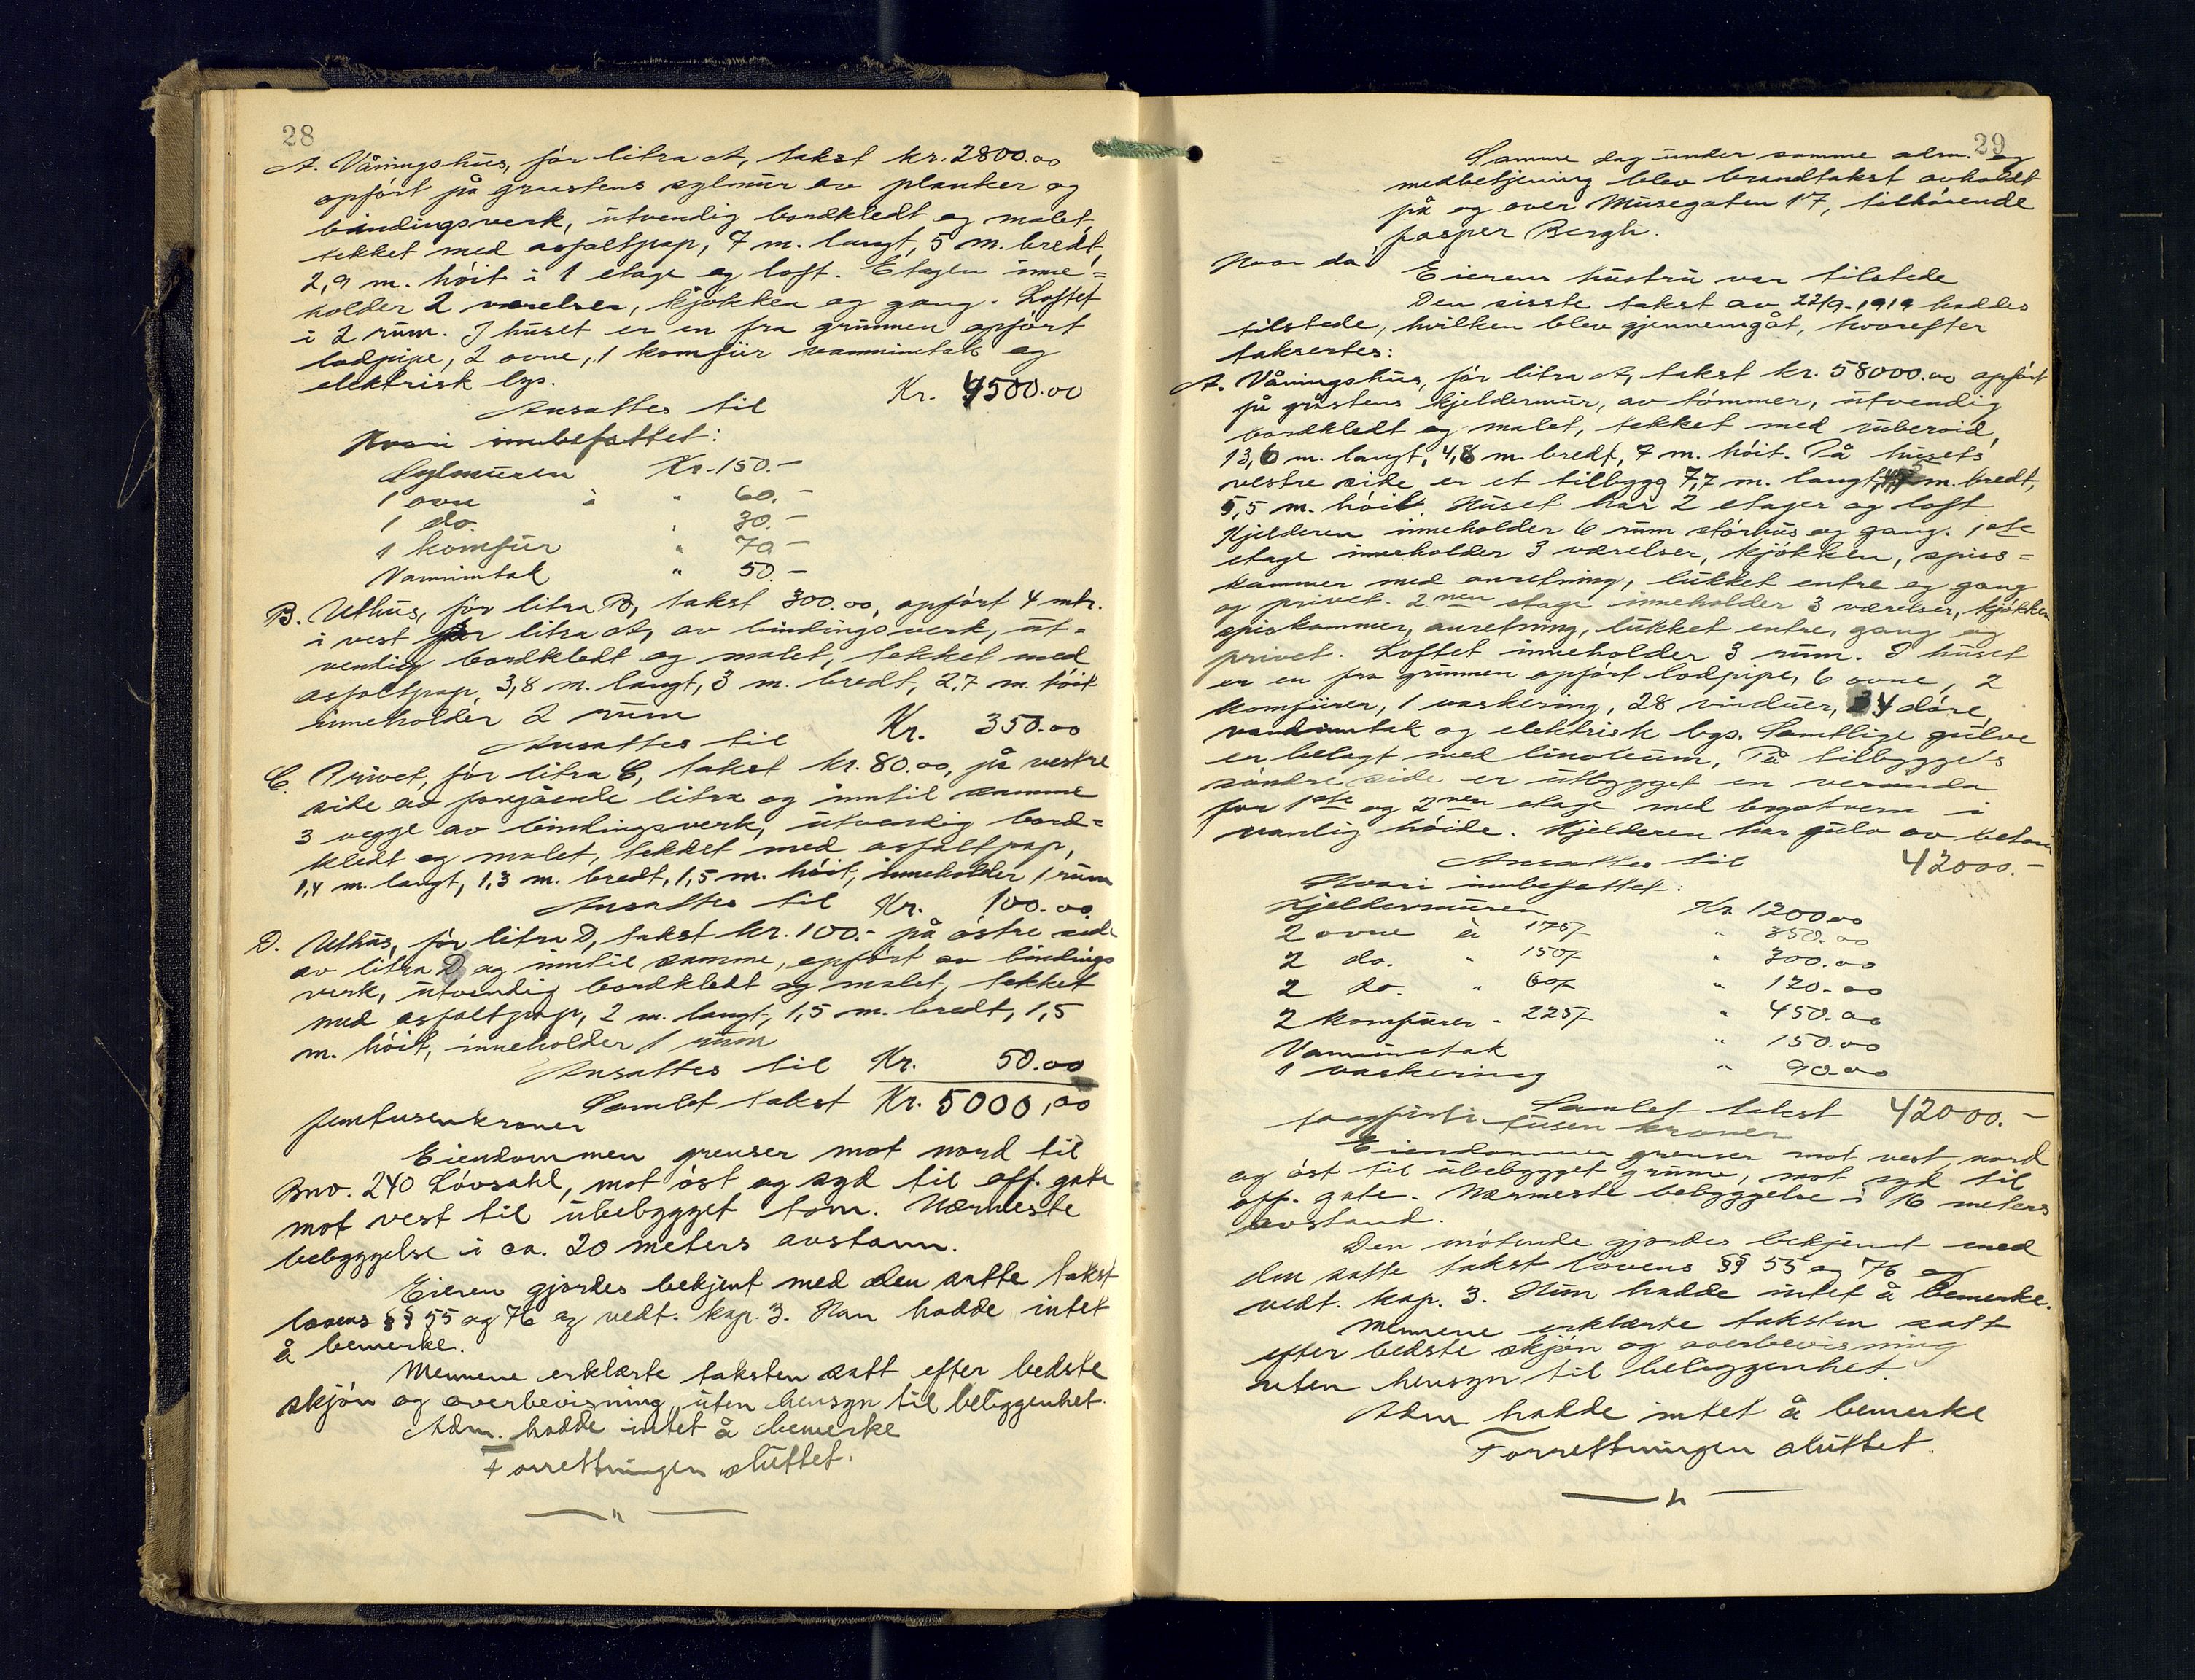 28
A. Våningshus, før litra A, takst kr. 2800.00
opført på graastens sylmur av planker og
bindingsverk, utvendig bordkledt og malet,
tekket med asfaltpap, 7 m. langt, 5 m. bredt,
2,9 m. høit i 1 etage og loft. Etagen inne=
holder 2 værelser, kjøkken og gang. Loftet
i 2 rum. I huset er en fra grunnen opført
lodpipe, 2 ovne, 1 komfur vanninntak og
elektrisk lys.
Ansattes til Kr. 4500.00
Hvori innbefattet:
Sylmuren Kr. 150.-
1 ovn à " 60.-
1 do. " 30.-
1 komfur " 70.-
Vanninntak " 50.-
B. Uthus, før litra B, takst 300.00, opført 4 mtr.
i vest for litra A, av bindingsverk, ut-
vendig bordkledt og malet, tekket med
asfaltpap, 3,8 m. langt, 3 m. bredt, 2,7 m. høit
inneholder 2 rum
Ansattes til Kr. 350.00
C. Privet, før litra C, takst kr. 80.00, på vestre
side av foregående litra og inntil samme
3 vegge av bindingsverk, utvendig bord=
kledt og malet, tekket med asfaltpap,
1,4 m. langt, 1,3 m. bredt, 1,5 m. høit, inneholder 1 rum
Ansattes til Kr. 100.00
D. Uthus, før litra D, takst kr. 100.- på østre side
av litra D og inntil samme, opført av bindings
verk, utvendig bordkledt og malet, tekket
med asfaltpap, 2 m. langt, 1,5 m. bredt, 1,5
m. høit, inneholder 1 rum
Ansattes til Kr. 50.00
Samlet takst Kr. 5000,00
femtusenkroner
Eiendommen grenser mot nord til
Bno. 240 Løvdahl, mot øst og syd til off. gate
mot vest til ubebygget tom. Nærmeste
bebyggelse i ca. 20 meters avstann.
Eieren gjordes bekjent med den satte takst
lovens §§ 55 og 76 og vedt. kap. 3. Han hadde intet
å bemerke.
Mennene erklærte taksten satt efter bedste
skjøn og overbevisning uten hensyn til beliggenhet.
Adm. hadde intet å bemerke
Forrettningen sluttet.
29
Samme dag under samme adm. og
medbetjening blev brandtakst avholdt
på og over Musegaten 17, tilhørende
Jasper Bergh.
Hvor da:
Eierens hustru var tilstede
Den sisste takst av 22/9. 1919 haddes
tilstede, hvilken blev gjennemgåt, hvorefter
taksertes:
A. Våningshus, før litra A, takst kr. 58000.00 opført
på gråstens kjeldermur, av tømmer, utvendig
bordkledt og malet, tekket med ruberoid,
13,6 m. langt, 4,8 m. bredt, 7 m. høit. På husets
vestre side er et tilbygg 7,7 m. langt, m. bredt,
5,5 m. høit. Huset har 2 etager og loft.
Kjelderen inneholder 6 rum størhus og gang. 1ste
etage inneholder 3 værelser, kjøkken, spiss=
kammer med anretning, lukket entre og gang
og privet. 2nen etage inneholder 3 værelser, kjøkken
spiskammer, anretning, lukket entre, gang og
privet. Loftet inneholder 3 rum. I huset
er en fra grunnen opført lodpipe, 6 ovne, 2
komfurer, 1 vaskering, 28 vinduer, 24 døre,
vandinntak og elektrisk lys. Samtlige gulve
er belagt med linoleum. På tilbyggets
søndre side er utbygget en veranda
for 1ste og 2nen etage med brystvern i
vanlig høide. Kjelderen har gulv av betong
Ansattes til 42000.-
Hvori innbefattet:
Kjeldermuren Kr. 1200.00
2 ovne à 175/ " 350.00
2 do. " 150/ " 300.00
2 do. " 60/ " 120.00
2 komfurer - 225/ " 450.00
Vanninntak " 150.00
1 vaskering " 90.00
Samlet takst 42000.-
toogførti tusen kroner
Eiendommen grenser mot vest, nord
og øst til ubebygget grunn, mot syd til
off. gate. Nærmeste bebyggelse i 16 meters
avstand.
Den møtende gjordes bekjent med
den satte takst lovens §§ 55 og 76 og
vedt. kap. 3. Hun hadde intet å bemerke.
Mennene erklærte taksten satt
efter bedste skjøn og overbevisning
uten hensyn til beliggenhet.
Adm hadde intet å bemerke
Forrettningen sluttet.